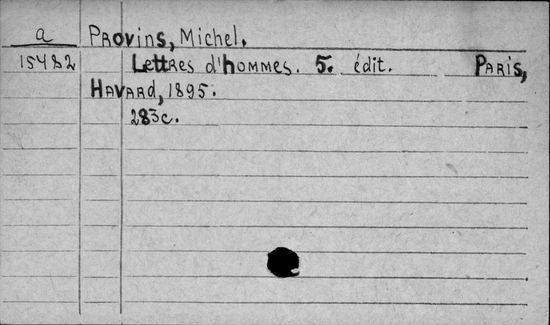 a Provins, Michel.
15482 Lettres d'hommes. 5. édit. Paris,
Havard, 1895.
283c.